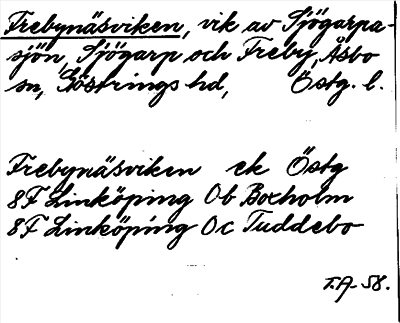 Frebynäsviken, vik av Sjögarpa-
sjön, Sjögarp och Freby, Åsbo
sn, Göstrings hd, Östg. l.
Frebynäsviken ek Östg
8F Linköping Ob Boxholm
8F Linköping Oc Tuddebo
T.A-58.